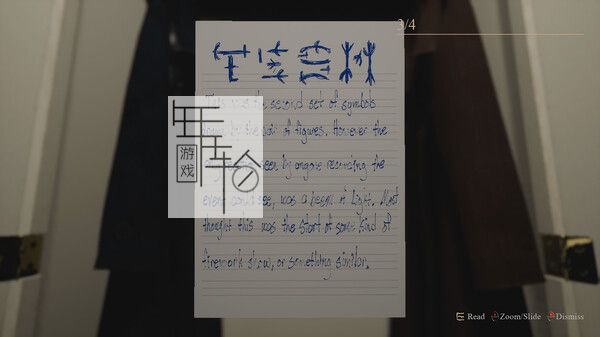 3/4
the second set of symbols
by the pair of figures. However the
seen by anyone recording the
could see, was a beam of light. Most
thought this was the start of some kind of
firework show, or something similar.
游戏
Read Zoom/Slide Dismiss